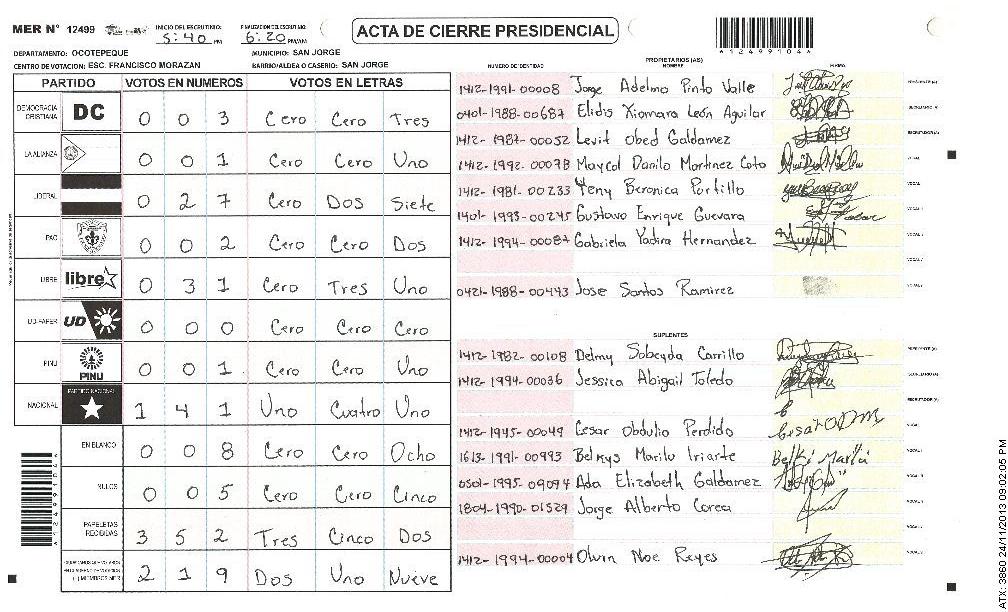 MER Nº 12499 INICIO DEL ESCRUTINIO: 5:40 PM FINALIZACION DEL ESCRUTINIO: 6:20 PM/AM ACTA DE CIERRE PRESIDENCIAL
*12499104*
DEPARTAMENTO: OCOTEPEQUE MUNICIPIO: SAN JORGE
CENTRO DE VOTACION: ESC. FRANCISCO MORAZAN BARRIO/ALDEA O CASERIO: SAN JORGE
PARTIDO VOTOS EN NUMEROS VOTOS EN LETRAS
DEMOCRACIA CRISTIANA DC 0 0 3 Cero Cero Tres
LA ALIANZA 0 0 1 Cero Cero Uno
LIBERAL 0 2 7 Cero Dos Siete
PAC 0 0 2 Cero Cero Dos
LIBRE libre 0 3 1 Cero Tres Uno
UD-FAPER UD 0 0 0 Cero Cero Cero
PINU PINU 0 0 1 Cero Cero Uno
NACIONAL PARTIDO NACIONAL 1 4 1 Uno Cuatro Uno
EN BLANCO 0 0 8 Cero Cero Ocho
NULOS 0 0 5 Cero Cero Cinco
PAPELETAS RECIBIDAS 3 5 2 Tres Cinco Dos
2 1 9 Dos Uno Nueve
PROPIETARIOS (AS)
NUMERO DE IDENTIDAD NOMBRE FIRMA
1412-1991-00008 Jorge Adelmo Pinto Valle
0401-1988-00687 Elidis Xiomara León Aguilar
1412-1987-00052 Levit Obed Galdamez
1412-1992-00078 Maycol Danilo Martinez Coto
1412-1981-00233 Yeny Beronica Portillo
1401-1993-00245 Gustavo Enrique Guevara
1412-1994-00087 Gabriela Yadira Hernandez
0421-1988-00443 Jose Santos Ramirez
SUPLENTES
1412-1982-00108 Delmy Sobeyda Carrillo
1412-1994-00036 Jessica Abigail Toledo
1412-1945-00049 Cesar Obdulio Perdido
1613-1991-00993 Belkys Marilu Iriarte
0501-1995-09094 Ada Elizabeth Galdamez
1804-1990-01529 Jorge Alberto Corea
1412-1994-00004 Olvin Noe Reyes
ATX: 3860 24/11/2013 09:02:05 PM